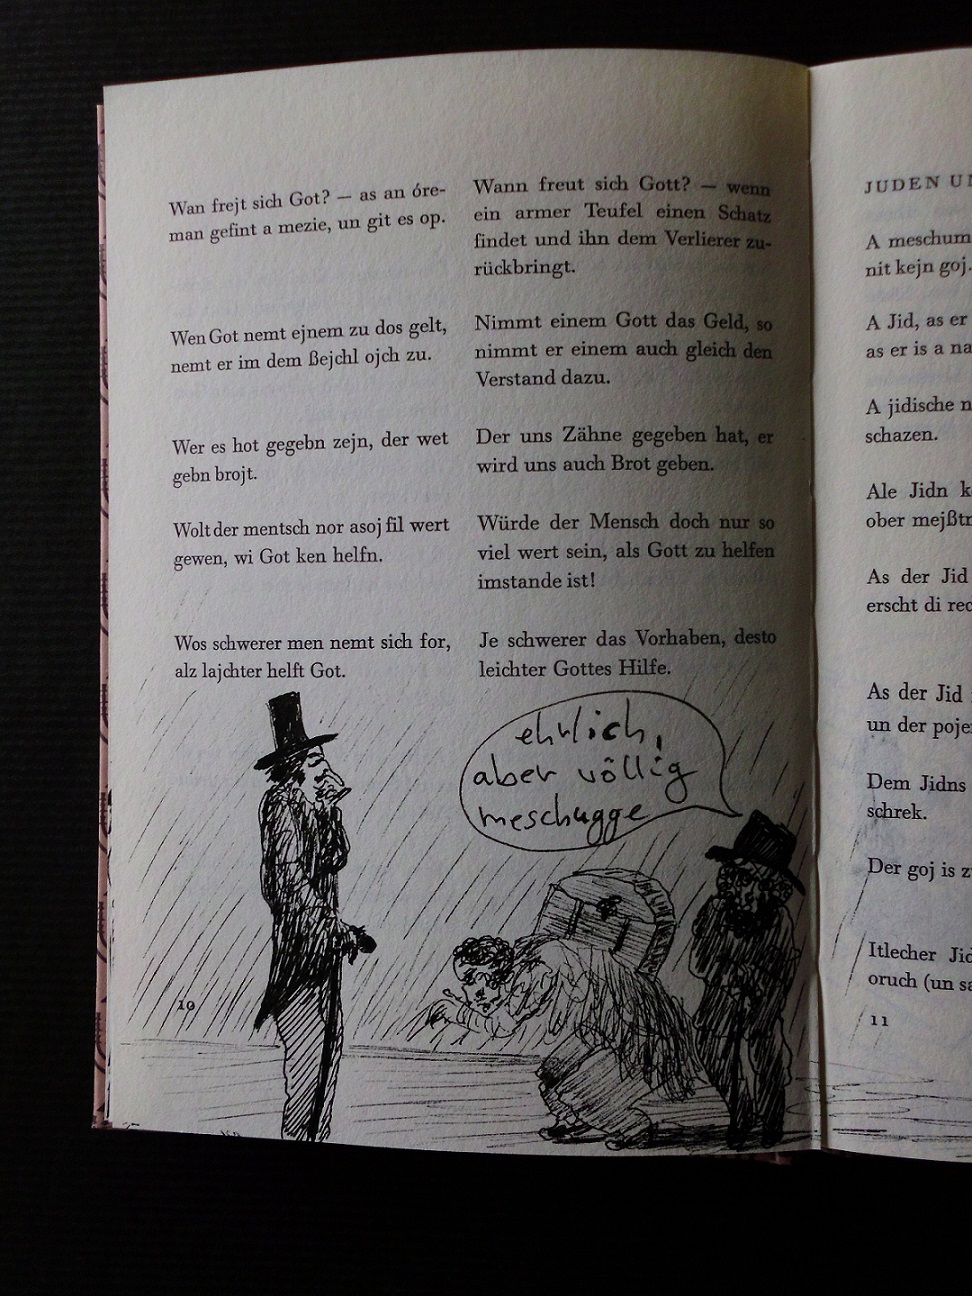 Wan frejt sich Got? — as an óre-
man gefint a mezie, un git es op.
Wen Got nemt ejnem zu dos gelt,
nemt er im dem ßejchl ojch zu.
Wer es hot gegebn zejn, der wet
gebn brojt.
Wolt der mentsch nor asoj fil wert
gewen, wi Got ken helfn.
Wos schwerer men nemt sich for,
alz lajchter helft Got.
Wann freut sich Gott? — wenn
ein armer Teufel einen Schatz
findet und ihn dem Verlierer zu-
rückbringt.
Nimmt einem Gott das Geld, so
nimmt er einem auch gleich den
Verstand dazu.
Der uns Zähne gegeben hat, er
wird uns auch Brot geben.
Würde der Mensch doch nur so
viel wert sein, als Gott zu helfen
imstande ist!
Je schwerer das Vorhaben, desto
leichter Gottes Hilfe.
ehrlich,
aber völlig
meschugge
10
JUDEN
A meschum
nit kejn goj.
A Jid, as er
as er is a na
A jidische
schazen.
Ale Jidn
ober mejßtn
As der Jid
erscht di
As der Jid
un der
Dem Jidns
schrek.
Der goj is
Itlecher
oruch (un
11